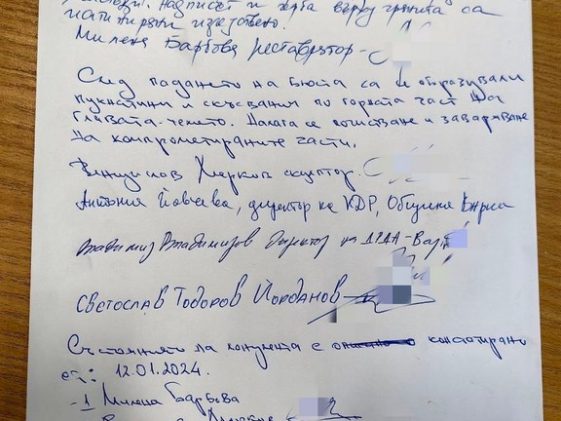 Надписът и герба върху гранита са
Милена Барбова реставратор -
След падането на бюста са се образували
пукнатини и скъсвания по горната част на
главата - челото. Налага се почистване и заваряване
на компрометираните части.
Венцислав Марков скулптор.
Антония Йовчева, директор на КДР, Община Варна
Владимир Владимиров Директор на
СВЕТОСЛАВ ТОДОРОВ ЙОРДАНОВ
Състоянието на монумента е констатирано
12.01.2024.
-1 Милена Барбова